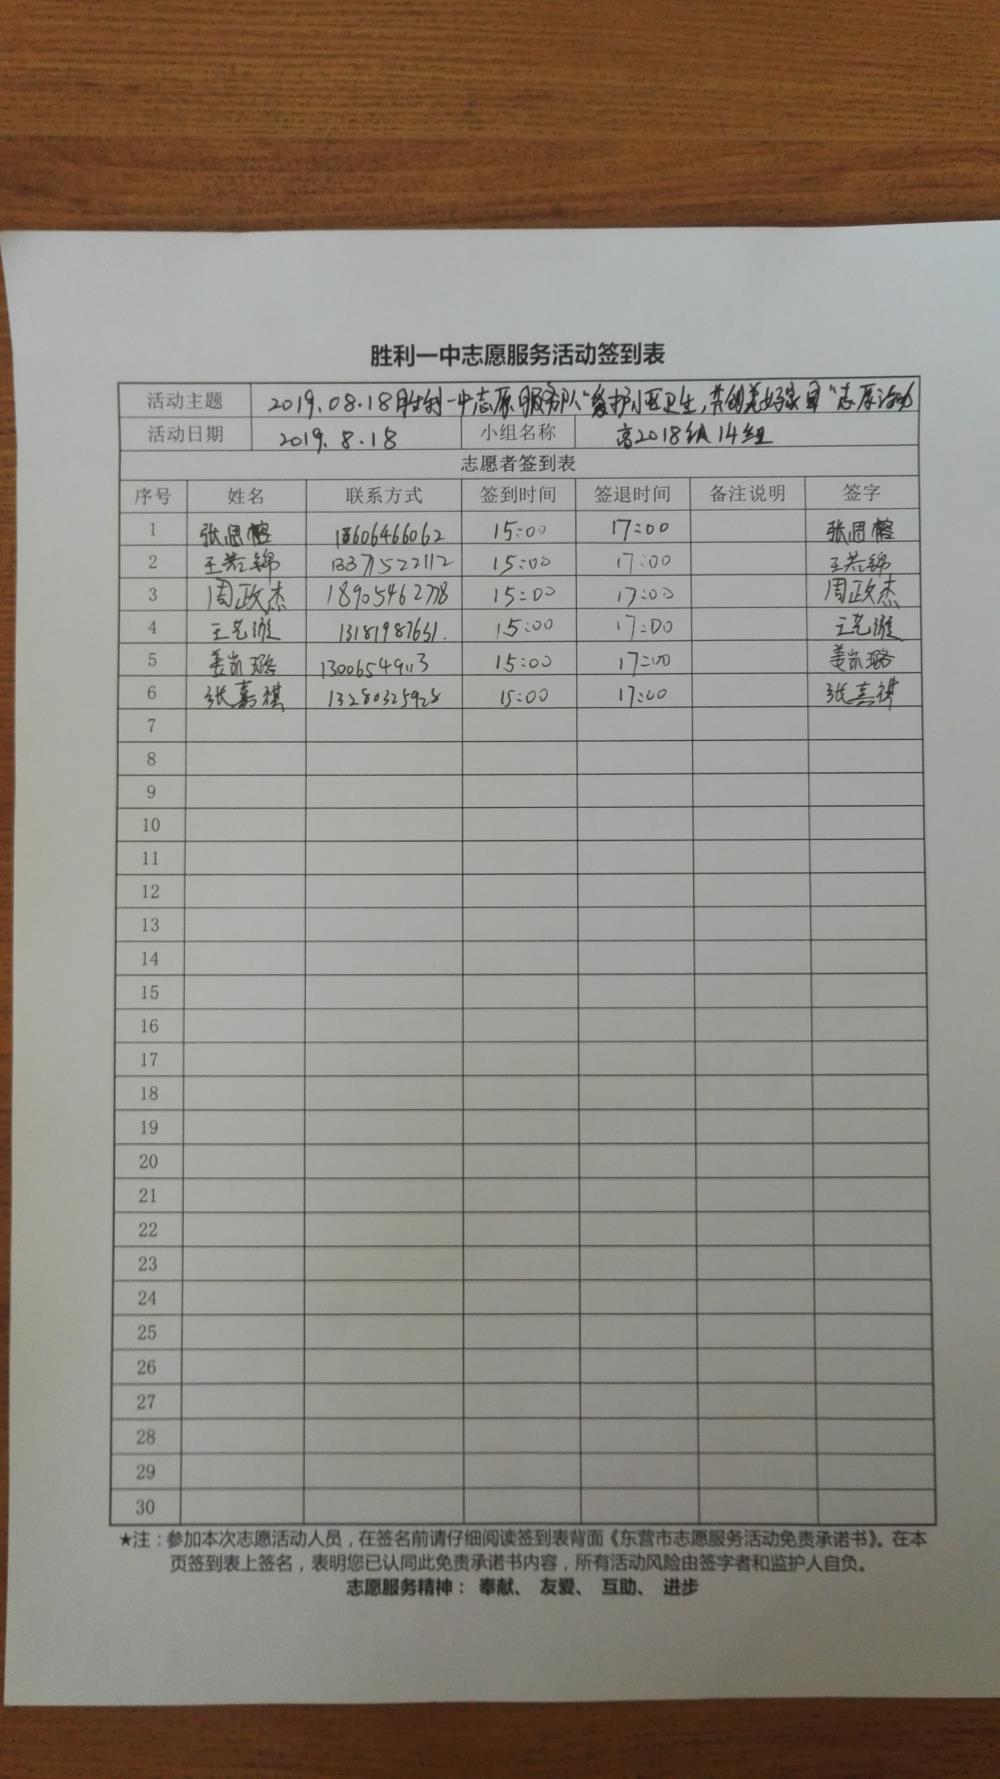 胜利一中志愿服务活动签到表
活动主题 2019.08.18胜利一中志愿服务队“爱护小区卫生,共创美好家园”志愿活动
活动日期 2019.8.18 小组名称 高2018级14组
志愿者签到表
序号 姓名 联系方式 签到时间 签退时间 备注说明 签字
1 张思榕 606466062 15:00 17:00 张思榕
2 王若锦 13371522112 15:00 17:00 王若锦
3 周政杰 18905462778 15:00 17:00 周政杰
4 王艺漩 13181987651. 15:00 17:00 王艺漩
5 姜凯璐 13006549113 15:00 17:00 姜凯璐
6 张嘉祺 13280325928 15:00 17:00 张嘉祺
7
8
9
10
11
12
13
14
15
16
17
18
19
20
21
22
23
24
25
26
27
28
29
30
★注：参加本次志愿活动人员，在签名前请仔细阅读签到表背面《东营市志愿服务活动免责承诺书》。在本
页签到表上签名，表明您已认同此免责承诺书内容，所有活动风险由签字者和监护人自负。
志愿服务精神： 奉献、 友爱、 互助、 进步